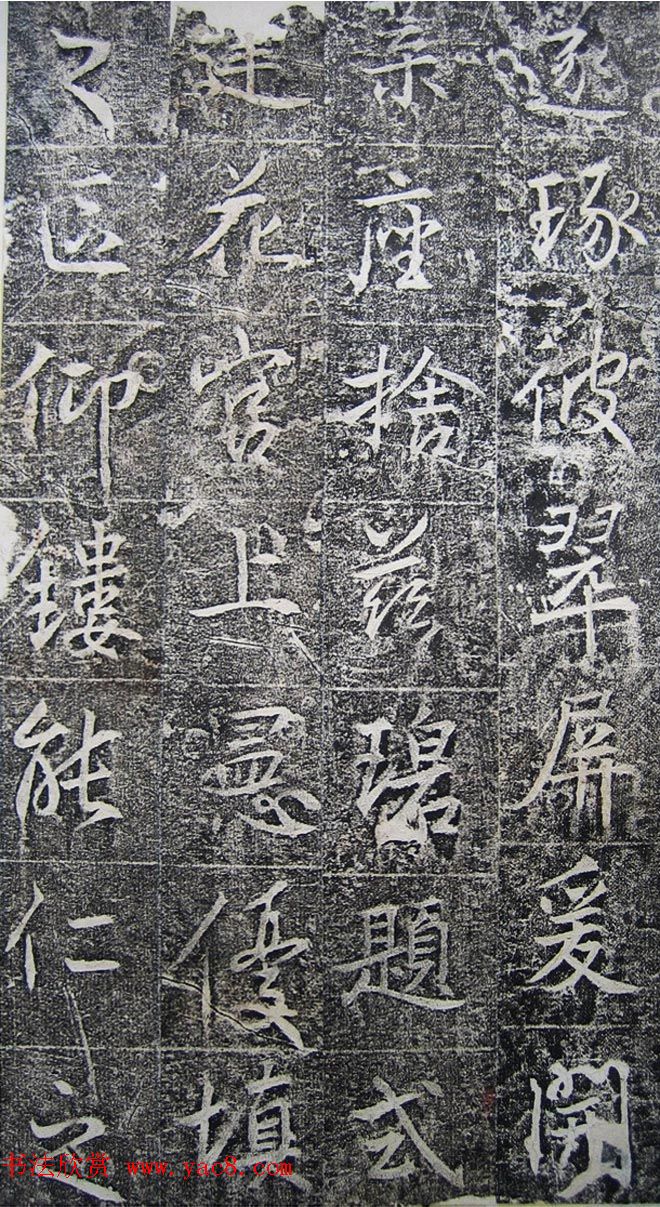 遂琢彼翠屏爰開
葉座捨茲碧題式
建花宮上優填
之區仰鏤能仁之
书法欣赏 www.yac8.com